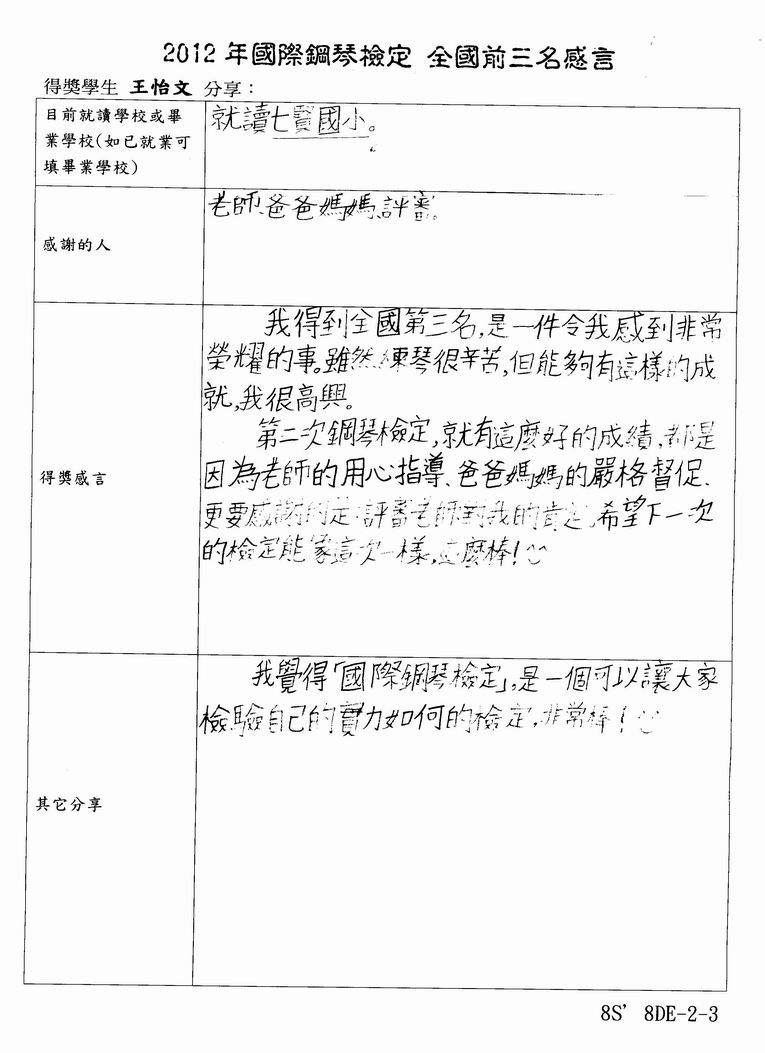 2012 年國際鋼琴檢定 全國前三名感言
得獎學生 王怡文 分享：
目前就讀學校或畢
業學校(如已就業可
填畢業學校)
就讀七賢國小。
感謝的人
老師、爸爸媽媽、評審。
得獎感言
我得到全國第三名,是一件令我感到非常
榮耀的事。雖然練琴很辛苦,但能夠有這樣的成
就,我很高興。
第二次鋼琴檢定,就有這麼好的成績,都是
因為老師的用心指導、爸爸媽媽的嚴格督促、
更要感謝的是評審老師對我的肯定,希望下一次
的檢定能像這次一樣,這麼棒!
其它分享
我覺得「國際鋼琴檢定」,是一個可以讓大家
檢驗自己的實力如何的檢定,非常棒!
8S' 8DE-2-3